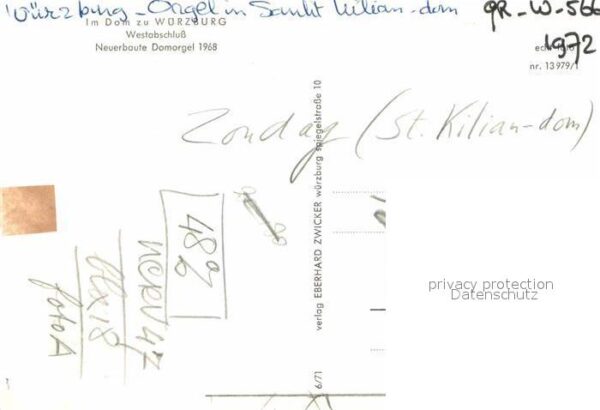 Würzburg - Orgel in Sankt Kilian-dom
QR-W-566
1972
Im Dom zu WÜRZBURG
Westabschluß
Neuerbaute Domorgel 1968
nr. 13979/1
Zondag (St. Kilian-dom)
verlag EBERHARD ZWICKER würzburg spiegelstraße 10
6/71
foto A
privacy protection
Datenschutz